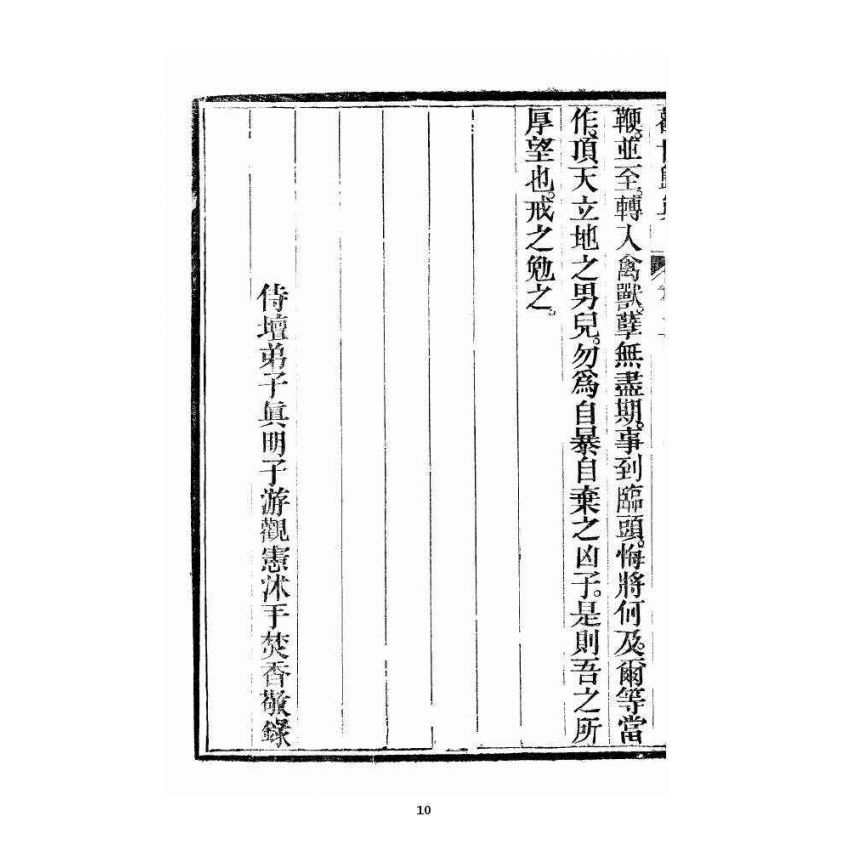 鞭。並至。轉入禽獸。孽無盡期。事到臨頭。悔將何及。爾等當
作。頂天立地之男兒。勿為自暴自棄之凶子。是則吾之所
厚望也。戒之勉之。
侍壇弟子眞明子游觀憲沐手焚香敬錄
10